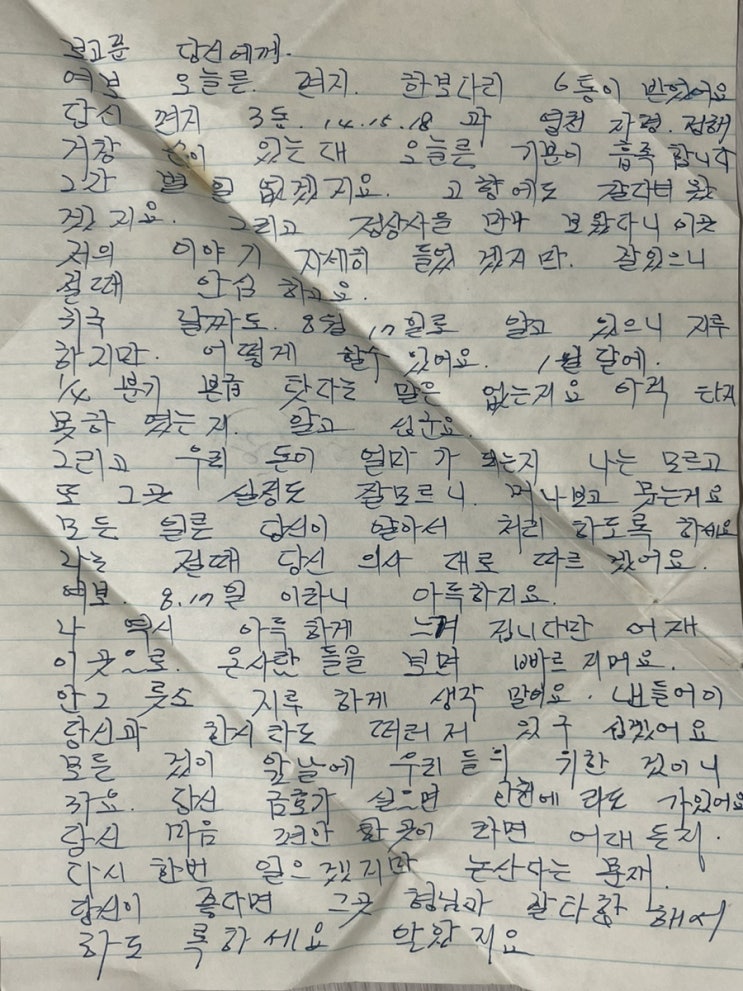 보고픈 당신에게.
여보 오늘른. 편지. 한보다리 6통이 받았어요
당신 편지 3통. 14.15.18 과 자형.
거창 있는대 오늘른 기분이 흡족 합니다
그간 별 일 없겠지요. 고향에도 갈다녀 왔
겠지요. 그리고 정상사을 만나 보왔다니 이곳
저의 이야기 자세히 들었겠지만. 잘있으니
절때 안심 하고요.
귀국 날짜도. 8월 17일로 알고 있으니 지루
하지만. 어떻게 할수 있어요. 1월 달에.
1/4 분기 본급 탓다는 말은 없는지요 아직 타지
못하 였는지. 알고 십군요.
그리고 우리 돈이 얼마가 되는지 나는 모르고
또 그곳 실정도 잘모르니. 머 나보고 뭇는게요
모든 일른 당신이 알아서 처리 하도록 하세요
나는 절때 당신 의사 대로 따르겠어요.
여보. 8.17일 이라니 아득하지요.
나 역시 아득하게 느껴 집니다만 어재
이곳으로. 온사람들을 보며 빠르지머요.
안그릇소 지루하게 생각 말어요. 낸들어이
당신과 한시라도 떠러저 있구 십겠어요
모든 것이 앞날에 우리들의 위한 것이니
까요. 당신 금호가 실으면 인천에라도 가있어요
당신 마음 편안 할곳이라면 어대든지.
다시 한번 일으겠지만 논산다는 문재.
당신이 좋다면 그곳 형님과 잘타합 해서
하도록하세요 알았지요